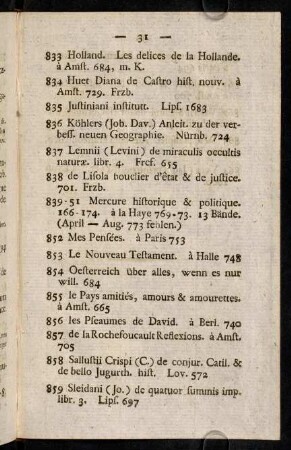 — 31 —
833 Holland. Les delices de la Hollande.
à Amst. 684, m. K.
834 Huet Diana de Castro hist. nouv. à
Amst. 729. Frzb.
835 Justiniani institutt. Lips. 1683
836 Köhlers (Joh. Dav.) Anleit. zu der ver-
bess. neuen Geographie. Nürnb. 724
837 Lemnii (Levini) de miraculis occultis
naturæ. libr. 4. Frcf. 655
838 de Lisola bouclier d'êtat & de justice.
701. Frzb.
839-51 Mercure historique & politique.
166-174. à la Haye 769-73. 13 Bände.
(April — Aug. 773 fehlen.)
852 Mes Pensées. à Paris 753
853 Le Nouveau Testament. à Halle 748
854 Oesterreich über alles, wenn es nur
will. 684
855 le Pays amitiés, amours & amourettes.
à Amst. 665
856 les Pseaumes de David. à Berl. 740
857 de la Rochefoucault Reflexions. à Amst.
705
858 Sallustii Crispi (C.) de conjur. Catil. &
de bello Jugurth. hist. Lov. 572
859 Sleidani (Jo.) de quatuor summis imp.
libr. 3. Lips. 697